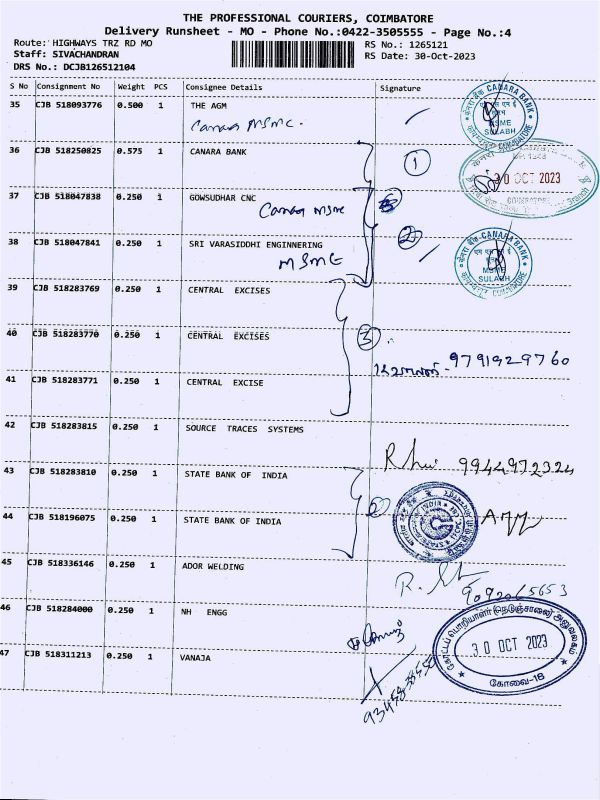 THE PROFESSIONAL COURIERS, COIMBATORE
Delivery Runsheet - MO - Phone No.:0422-3505555 - Page No.:4
Route: HIGHWAYS TRZ RD MO
RS No.: 1265121
Staff: SIVACHANDRAN
RS Date: 30-Oct-2023
DRS No.: DCJB126512104
S No Consignment No Weight PCS Consignee Details Signature
35 CJB 518093776 0.500 1 THE AGM
Canara MSME.
CANARA BANK
MSME
SULABH
36 CJB 518250825 0.575 1 CANARA BANK 1
30 OCT 2023
COIMBATORE
37 CJB 518047838 0.250 1 GOWSUDHAR CNC
Canara MSME
38 CJB 518047841 0.250 1 SRI VARASIDDHI ENGINNERING 2
MSME
CANARA BANK
MSME
SULABH
COIMBATORE
39 CJB 518283769 0.250 1 CENTRAL EXCISES
40 CJB 518283770 0.250 1 CENTRAL EXCISES 3
9791929760
41 CJB 518283771 0.250 1 CENTRAL EXCISE
42 CJB 518283815 0.250 1 SOURCE TRACES SYSTEMS
9944972324
43 CJB 518283810 0.250 1 STATE BANK OF INDIA
44 CJB 518196075 0.250 1 STATE BANK OF INDIA
45 CJB 518336146 0.250 1 ADOR WELDING
9092065653
46 CJB 518284000 0.250 1 NH ENGG
கோட்டப் பொறியாளர் (நெடுஞ்சாலை) அலுவலகம்
30 OCT 2023
கோவை-18
47 CJB 518311213 0.250 1 VANAJA